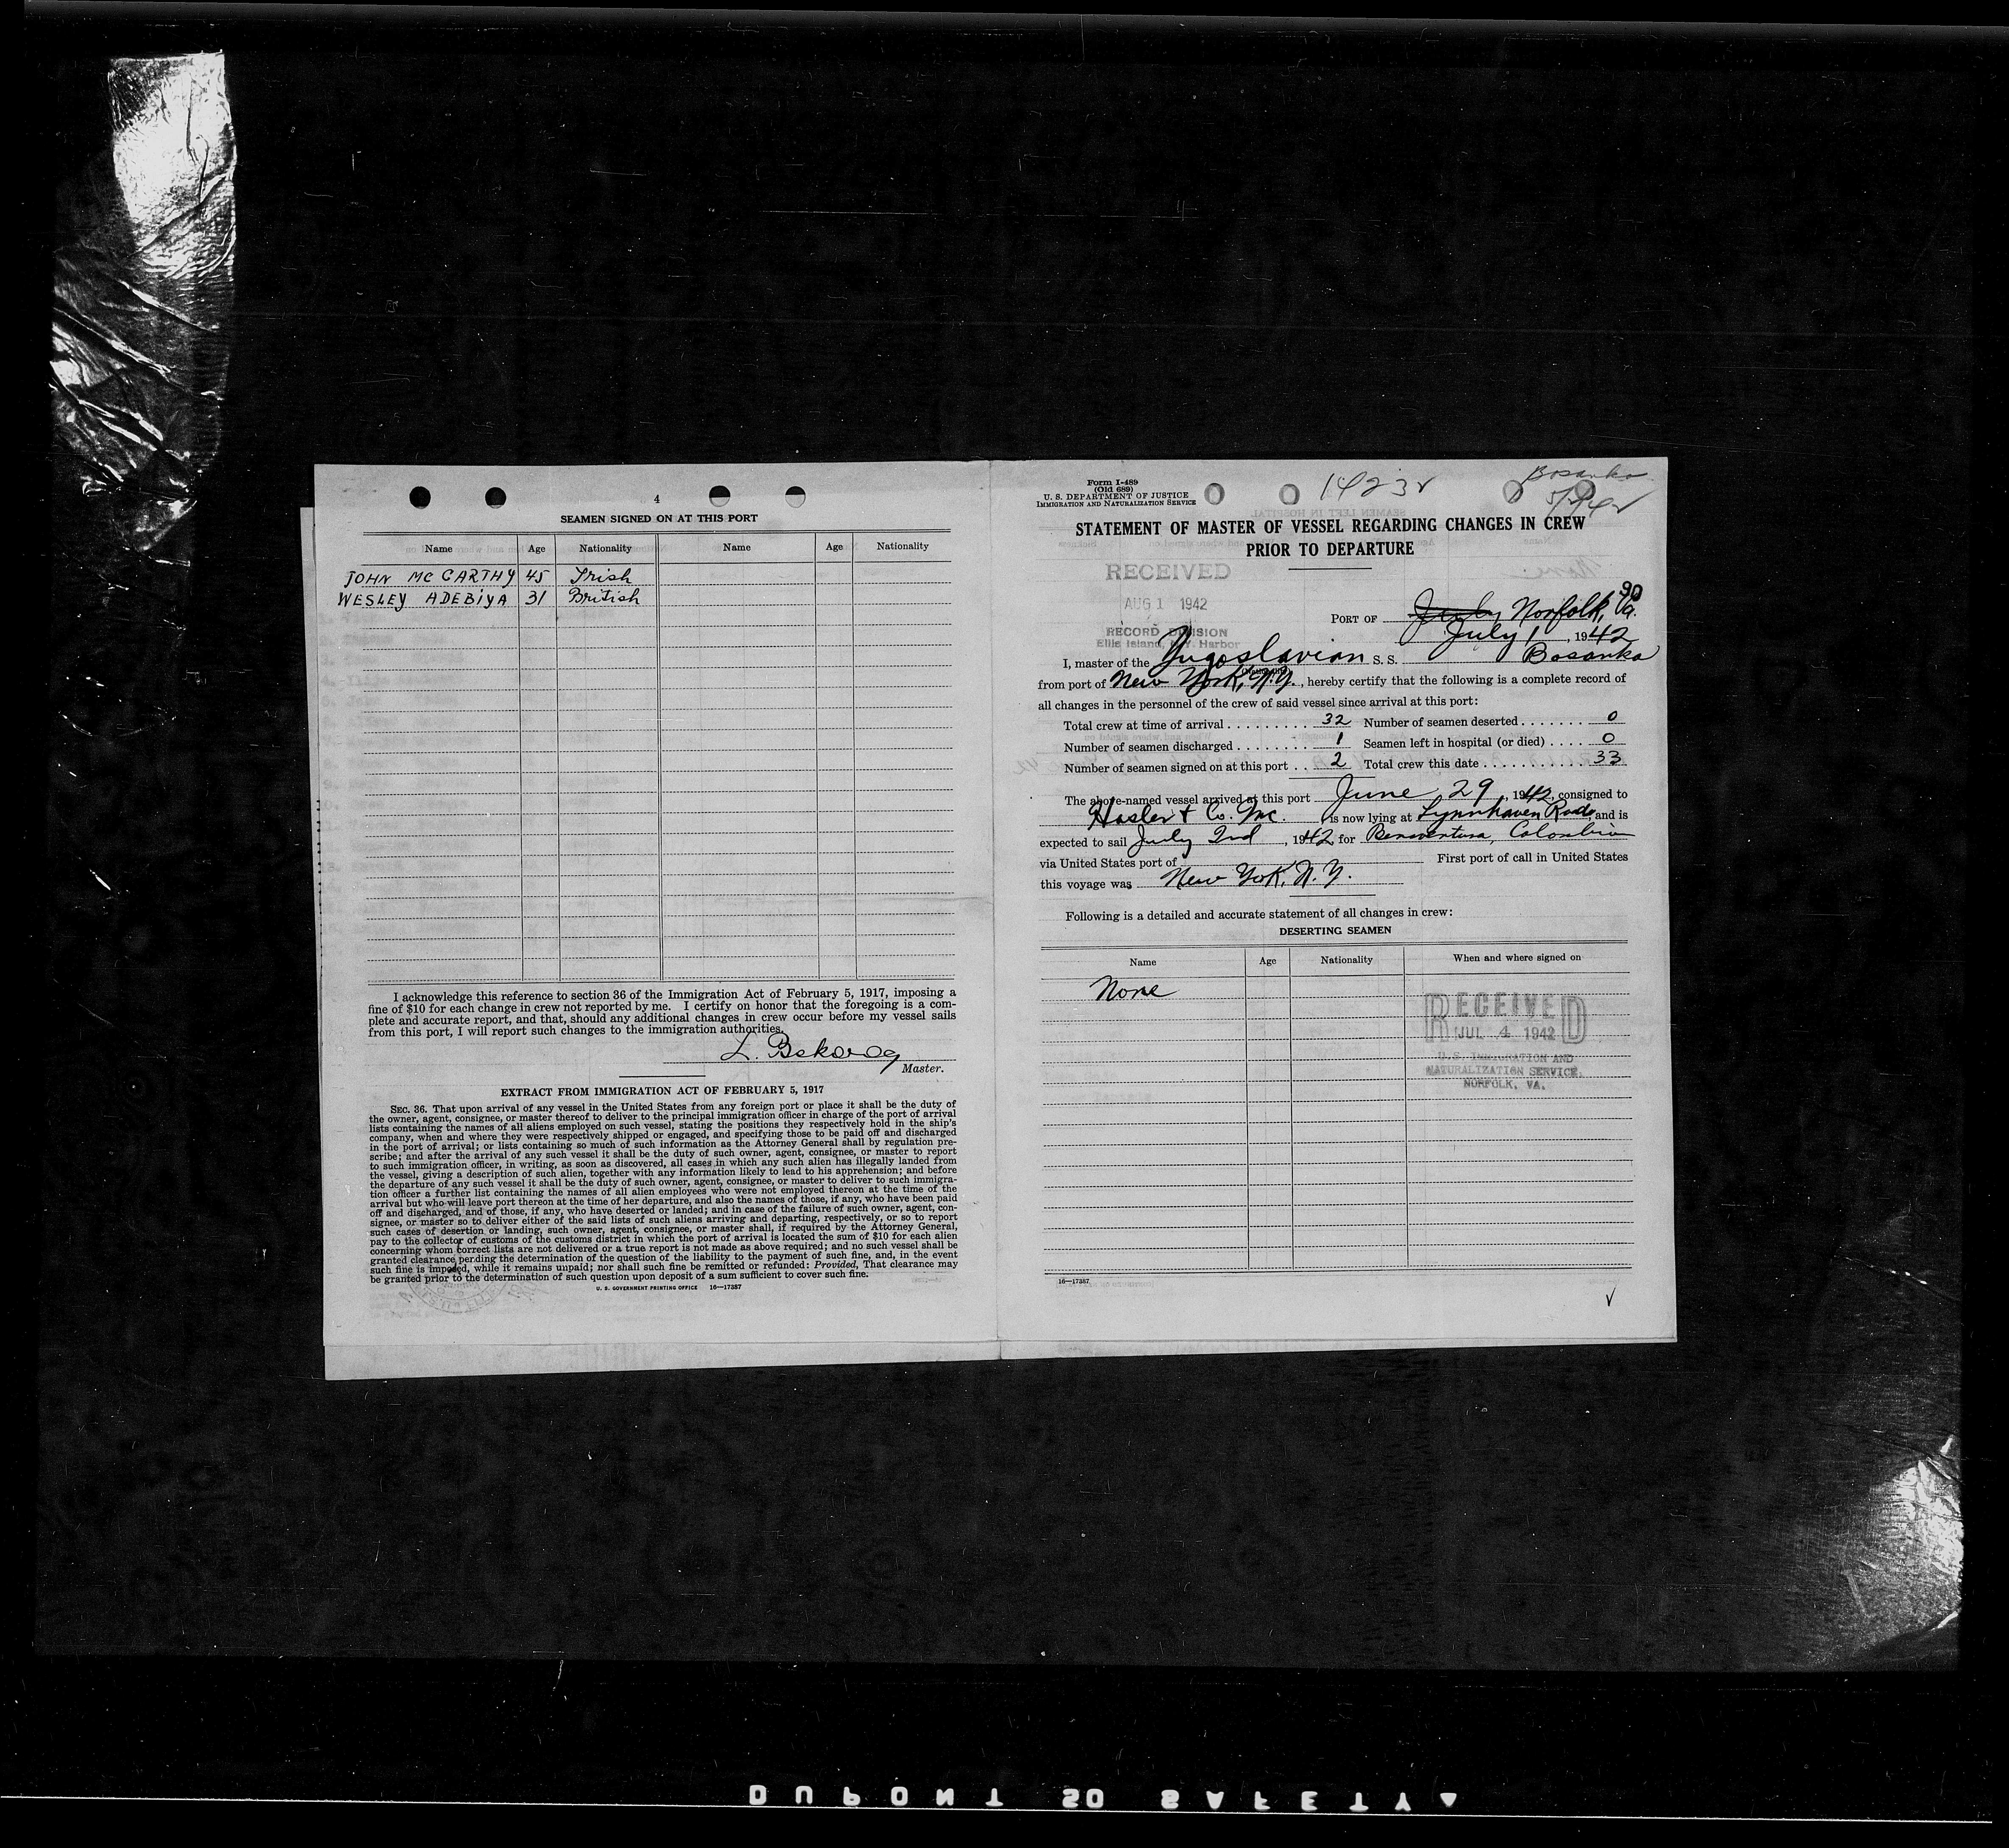 4
SEAMEN SIGNED ON AT THIS PORT
Name Age Nationality Name Age Nationality
JOHN MC CARTHY 45 Irish
WESLEY ADEBIYA 31 British
I acknowledge this reference to section 36 of the Immigration Act of February 5, 1917, imposing a
fine of $10 for each change in crew not reported by me. I certify on honor that the foregoing is a com-
plete and accurate report, and that, should any additional changes in crew occur before my vessel sails
from this port, I will report such changes to the immigration authorities.
L.
Master.
EXTRACT FROM IMMIGRATION ACT OF FEBRUARY 5, 1917
SEC. 36. That upon arrival of any vessel in the United States from any foreign port or place it shall be the duty of
the owner, agent, consignee, or master thereof to deliver to the principal immigration officer in charge of the port of arrival
lists containing the names of all aliens employed on such vessel, stating the positions they respectively hold in the ship's
company, when and where they were respectively shipped or engaged, and specifying those to be paid off and discharged
in the port of arrival; or lists containing so much of such information as the Attorney General shall by regulation pre-
scribe; and after the arrival of any such vessel it shall be the duty of such owner, agent, consignee, or master to report
to such immigration officer, in writing, as soon as discovered, all cases in which any such alien has illegally landed from
the vessel, giving a description of such alien, together with any information likely to lead to his apprehension; and before
the departure of any such vessel it shall be the duty of such owner, agent, consignee, or master to deliver to such immigra-
tion officer a further list containing the names of all alien employees who were not employed thereon at the time of the
arrival but who will leave port thereon at the time of her departure, and also the names of those, if any, who have been paid
off and discharged, and of those, if any, who have deserted or landed; and in case of the failure of such owner, agent, con-
signee, or master so to deliver either of the said lists of such aliens arriving and departing, respectively, or so to report
such cases of desertion or landing, such owner, agent, consignee, or master shall, if required by the Attorney General,
pay to the collector of customs of the customs district in which the port of arrival is located the sum of $10 for each alien
concerning whom correct lists are not delivered or a true report is not made as above required; and no such vessel shall be
granted clearance pending the determination of the question of the liability to the payment of such fine, and, in the event
such fine is imposed, while it remains unpaid; nor shall such fine be remitted or refunded: Provided, That clearance may
be granted prior to the determination of such question upon deposit of a sum sufficient to cover such fine.
U. S. GOVERNMENT PRINTING OFFICE 16—17387
Form I-489
(Old 689)
U. S. DEPARTMENT OF JUSTICE
IMMIGRATION AND NATURALIZATION SERVICE
Bosanka
STATEMENT OF MASTER OF VESSEL REGARDING CHANGES IN CREW
PRIOR TO DEPARTURE
RECEIVED
AUG 1 1942
RECORD DIVISION
Ellis Island, N.Y. Harbor
90
PORT OF Norfolk, Va.
July 1, 1942
I, master of the Yugoslavian S. S. Bosanka
from port of New York, N.Y., hereby certify that the following is a complete record of
all changes in the personnel of the crew of said vessel since arrival at this port:
Total crew at time of arrival 32 Number of seamen deserted 0
Number of seamen discharged 1 Seamen left in hospital (or died) 0
Number of seamen signed on at this port 2 Total crew this date 33
The above-named vessel arrived at this port June 29, 1942, consigned to
Hasler & Co. Inc. is now lying at Lynnhaven Rads and is
expected to sail July 2nd, 1942 for Benaventura, Colombia
via United States port of First port of call in United States
this voyage was New Yok, N. Y.
Following is a detailed and accurate statement of all changes in crew:
DESERTING SEAMEN
Name Age Nationality When and where signed on
None
RECEIVED
JUL 4 1942
U.S. IMMIGRATION AND
NATURALIZATION SERVICE.
NORFOLK, VA.
16—17387
DUPONT SAFETY